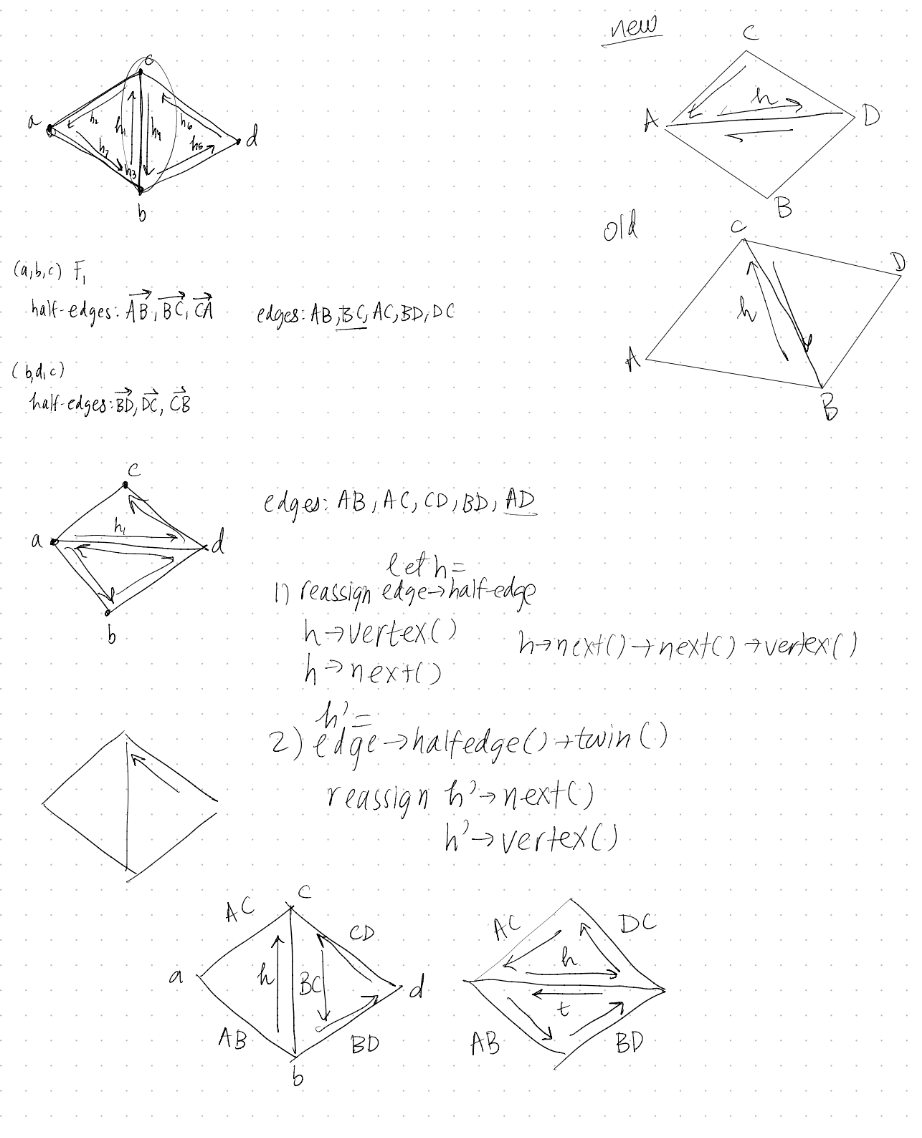 new
C
h
A
D
B
c
a
h₆
h₁
h₄
h₆
h₂
h₃
h₅
d
b
old
C
D
h
A
B
(a,b,c) F₁
half-edges: AB, BC, CA
edges: AB, BC, AC, BD, DC
(b,d,c)
half-edges: BD, DC, CB
c
a
h₁
d
b
edges: AB, AC, CD, BD, AD
let h =
1) reassign edge→half-edge
h→vertex()
h→next()
h→next()→next()→vertex()
h' =
2) edge→halfedge()→twin()
reassign h'→next()
h'→vertex()
c
AC
CD
a
h
BC
d
AB
BD
b
AC
DC
h
t
AB
BD